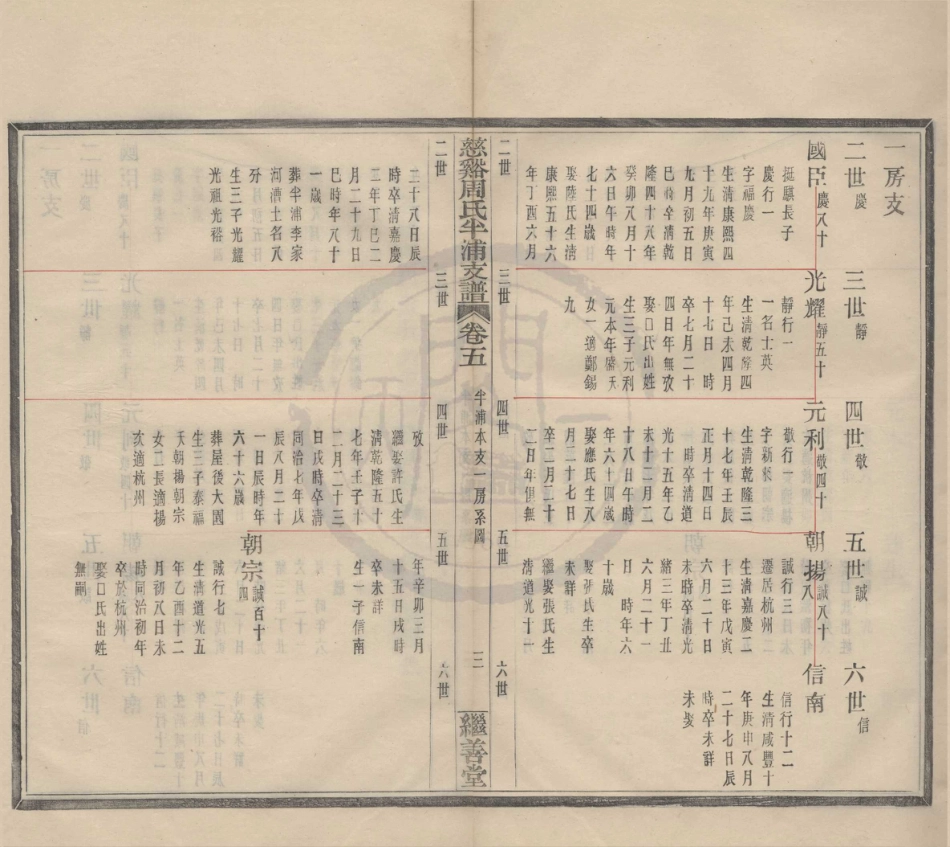 一房支
二世慶
三世靜
四世敬
五世誠
六世信
國臣慶八十
挺騏長子
慶行一
字福慶
生清康熙四
十九年庚寅
九月初五日
巳時卒清乾
隆四十八年
癸卯八月十
六日午時年
七十四歲
娶陸氏生清
康熙五十六
年丁酉六月
二世
光耀靜五十
靜行一
一名士英
生清乾隆四
年己未四月
十七日　時
卒七月二十
四日年無攷
娶口氏出姓
生三子元利
元本元
女一適鄭錫
九
三世
元利敬四十
敬行一
字新
生清乾隆三
十七年壬辰
正月十四日
時卒清道
光十五年乙
未十二月二
十八日午時
年六十四歲
娶應氏生八
月二十七日
卒二月二十
二日年俱無
四世
朝揚誠八十八
誠行三
遷居杭州
生清嘉慶二
十三年戊寅
六月二十日
未時卒清光
緒三年丁丑
六月二十一
日　時年六
十歲
娶張氏生卒
未詳
繼娶張氏生
清道光十一
五世
信南
信行十二
生清咸豐十
年庚申八月
二十七日辰
時卒未詳
未娶
六世
慈谿周氏半浦支譜
卷五
半浦本支一房系圖
三
繼善堂
二世
二十八日辰
時卒清嘉慶
二年丁巳二
月二十九日
巳時年八十
一歲
葬半浦李家
河濟土名八
分
生三子光耀
光祖光裕
三世
四世
攷
繼娶許氏生
清乾隆五十
七年壬子十
二月二十三
日戌時卒清
同治七年戊
辰八月二十
一日辰時年
六十六歲
葬屋後大園
生三子泰福
夭朝揚朝宗
女二長適楊
次適杭州
五世
年辛卯三月
十五日戌時
卒未詳
生一子信南
朝宗誠百十四
誠行七
生清道光五
年乙酉十二
月初八日未
時同治初年
卒於杭州
娶口氏出姓
無嗣
六世